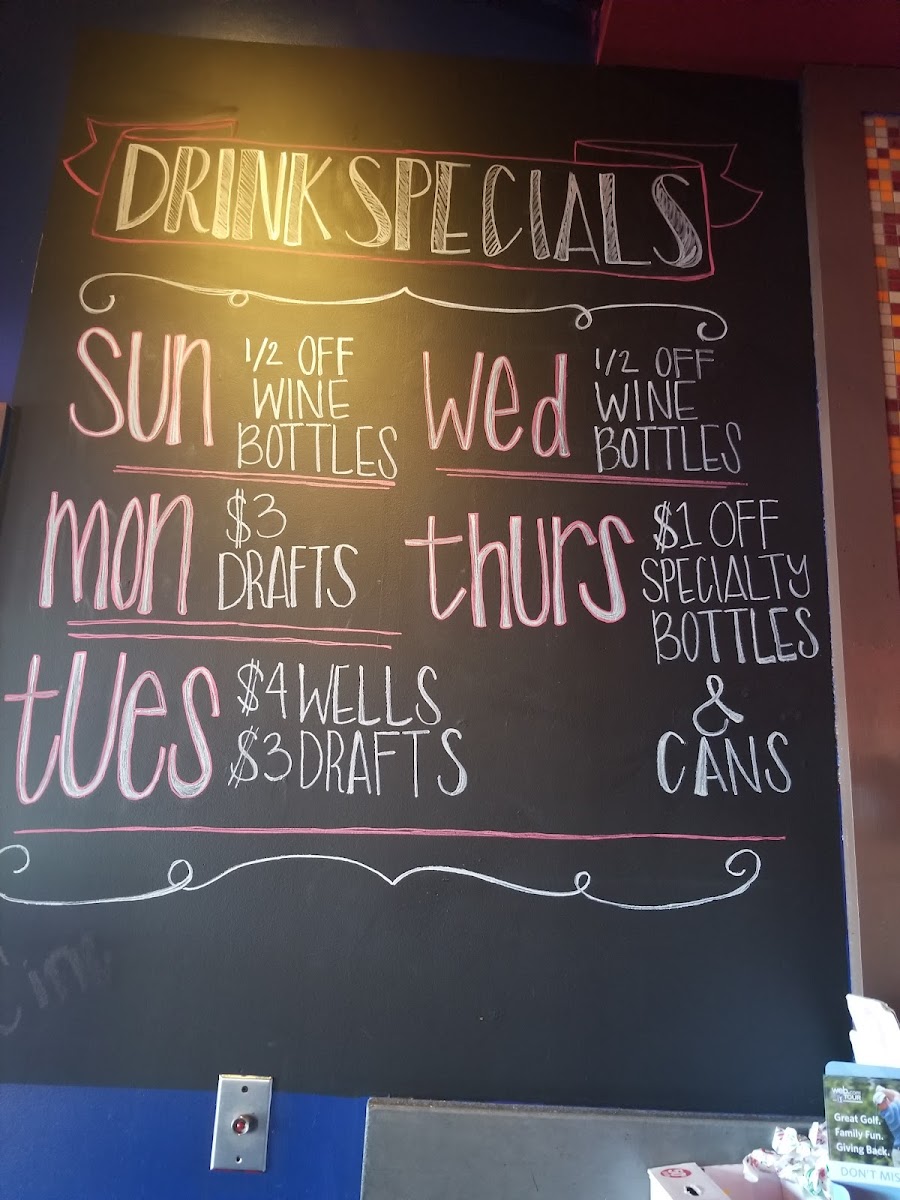 DRINK SPECIALS
sun
1/2 OFF
WINE
BOTTLES
mon
$3
DRAFTS
tues
$4 WELLS
$3 DRAFTS
wed
1/2 OFF
WINE
BOTTLES
thurs
$1 OFF
SPECIALTY
BOTTLES
&
CANS
Great Golf.
Family Fun.
Giving Back.